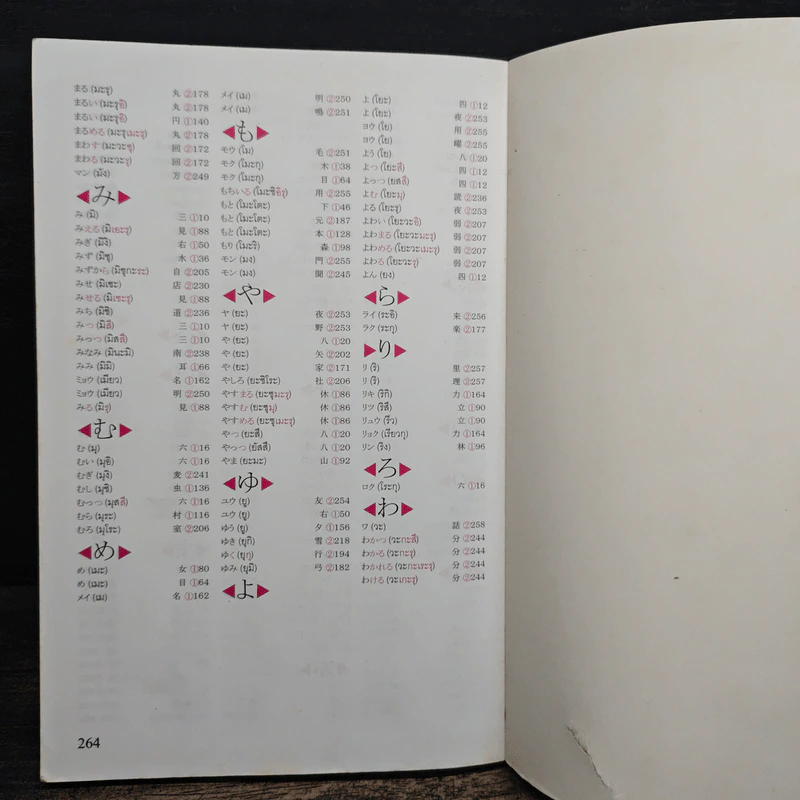 まる (มะรุ) 丸 ②178
まるい (มะรุอิ) 丸 ②178
まるい (มะรุอิ) 円 ①140
まるめる (มะรุเมะรุ) 丸 ②178
まわす (มะวะซุ) 回 ②172
まわる (มะวะรุ) 回 ②172
マン (มัง) 万 ②249
◀み▶
み (มิ) 三 ①10
みえる (มิเอะรุ) 見 ①88
みぎ (มิงิ) 右 ①50
みず (มิซุ) 水 ①36
みずから (มิซุกะระ) 自 ②205
みせ (มิเซะ) 店 ②230
みせる (มิเซะรุ) 見 ①88
みち (มิชิ) 道 ②236
みっ (มิสึ) 三 ①10
みっつ (มิสสึ) 三 ①10
みなみ (มินะมิ) 南 ②238
みみ (มิมิ) 耳 ①66
ミョウ (เมียว) 名 ①162
ミョウ (เมียว) 明 ②250
みる (มิรุ) 見 ①88
◀む▶
む (มุ) 六 ①16
むい (มุอิ) 六 ①16
むぎ (มุงิ) 麦 ②241
むし (มุชิ) 虫 ①136
むっつ (มุสสึ) 六 ①16
むら (มุระ) 村 ①116
むろ (มุโระ) 室 ②206
◀め▶
め (เมะ) 女 ①80
め (เมะ) 目 ①64
メイ (เม) 名 ①162
メイ (เม) 明 ②250
メイ (เม) 鳴 ②251
◀も▶
モウ (โม) 毛 ②251
モク (โมะกุ) 木 ①38
モク (โมะกุ) 目 ①64
もちいる (โมะชิอิรุ) 用 ②255
もと (โมะโตะ) 下 ①46
もと (โมะโตะ) 元 ②187
もと (โมะโตะ) 本 ①128
もり (โมะริ) 森 ①98
モン (มง) 門 ②255
モン (มง) 聞 ②245
◀や▶
ヤ (ยะ) 夜 ②253
ヤ (ยะ) 野 ②253
や (ยะ) 八 ①20
や (ยะ) 矢 ②202
や (ยะ) 家 ②171
やしろ (ยะชิโระ) 社 ②206
やすまる (ยะซุมะรุ) 休 ①86
やすむ (ยะซุมุ) 休 ①86
やすめる (ยะซุเมะรุ) 休 ①86
やっ (ยะสึ) 八 ①20
やっつ (ยัสสึ) 八 ①20
やま (ยะมะ) 山 ①92
◀ゆ▶
ユウ (ยู) 友 ②254
ユウ (ยู) 右 ①50
ゆう (ยู) 夕 ①156
ゆき (ยุกิ) 雪 ②218
ゆく (ยุกุ) 行 ②194
ゆみ (ยุมิ) 弓 ②182
◀よ▶
よ (โยะ) 四 ①12
よ (โยะ) 夜 ②253
ヨウ (โย) 用 ②255
ヨウ (โย) 曜 ②255
よう (โย) 八 ①20
よっ (โยะสึ) 四 ①12
よっつ (ยสสึ) 四 ①12
よむ (โยะมุ) 読 ②236
よる (โยะรุ) 夜 ②253
よわい (โยะวะอิ) 弱 ②207
よわまる (โยะวะมะรุ) 弱 ②207
よわめる (โยะวะเมะรุ) 弱 ②207
よわる (โยะวะรุ) 弱 ②207
よん (ยง) 四 ①12
◀ら▶
ライ (ระอิ) 来 ②256
ラク (ระกุ) 楽 ②177
▶り▶
リ (ริ) 里 ②257
リ (ริ) 理 ②257
リキ (ริกิ) 力 ①164
リツ (ริสึ) 立 ①90
リュウ (ริว) 立 ①90
リョク (เรียวกุ) 力 ①164
リン (ริง) 林 ①96
◀ろ▶
ロク (โระกุ) 六 ①16
◀わ▶
ワ (วะ) 話 ②258
わかつ (วะกะสึ) 分 ②244
わかる (วะกะรุ) 分 ②244
わかれる (วะกะเระรุ) 分 ②244
わける (วะเกะรุ) 分 ②244
264